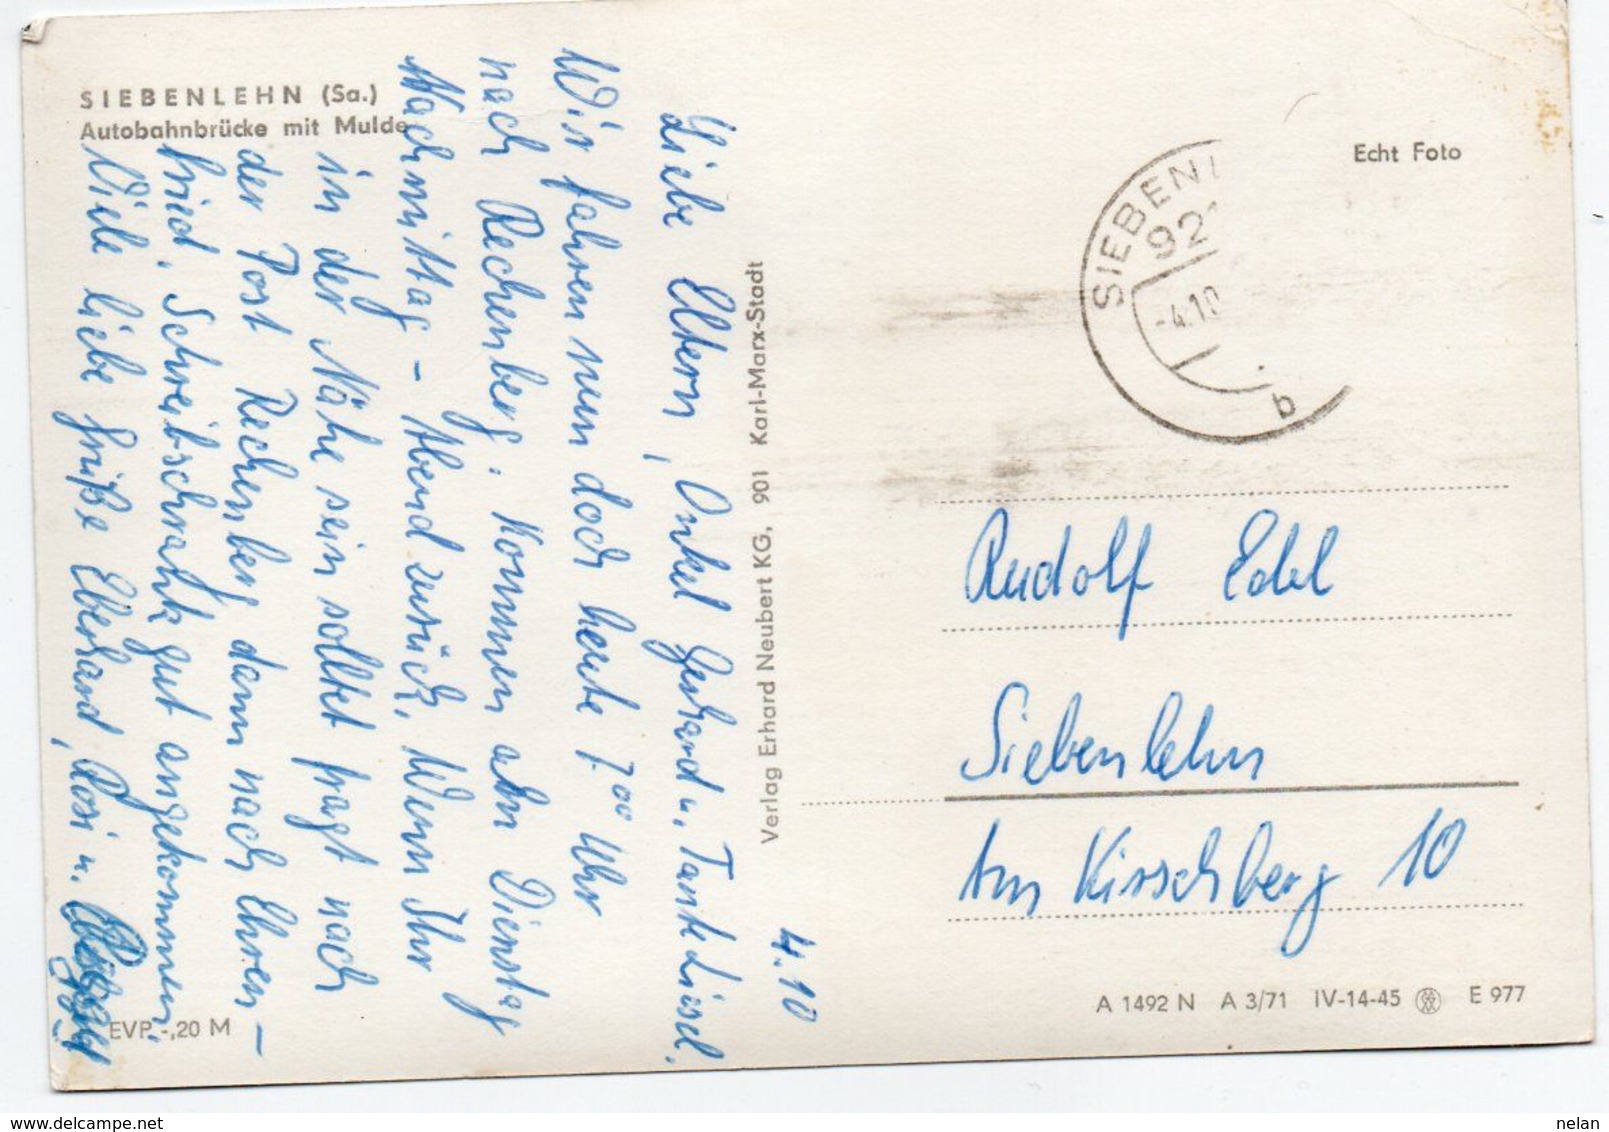 SIEBENLEHN (Sa.)
Autobahnbrücke mit Mulde
4.10
Liebe Eltern, Onkel Gerhard u. Tante Liesel.
Wir fahren nun doch heute 7.00 Uhr
nach Rechenberg. Kommen abn Dienstag
Nachmittag - Abend zurück. Wenn Ihr
in der Nähe sein solltet fragt nach
der Post Rechenberg dann nach Ehren-
fried. Schreibschrank gut angekommen.
Viele liebe Grüße Eberhard, Rosi u.
EVP -,20 M
Verlag Erhard Neubert KG, 901 Karl-Marx-Stadt
Echt Foto
SIEBENL
921
-4.10
b
Rudolf Edel
Siebenlehn
Am Kirschberg 10
A 1492 N A 3/71 IV-14-45 E 977
www.delcampe.net
nelan